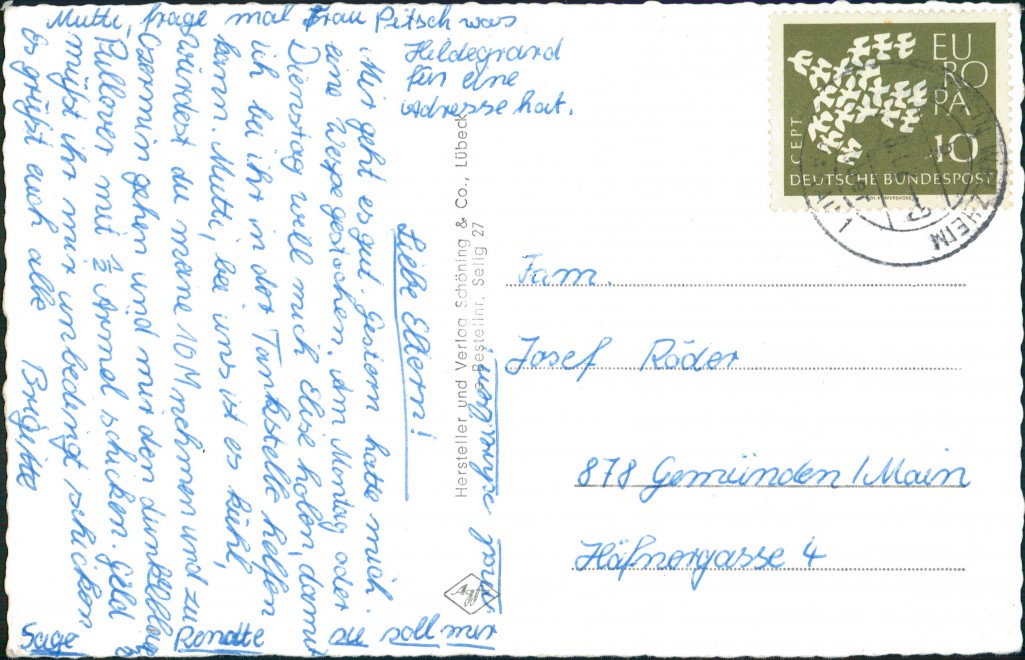 Mutti, frage mal Frau Petsch was
Hildegrard
für eine
Adresse hat.
Liebe Eltern!
Mir geht es gut. Gestern hatte mich
eine Wespe gestochen. Am Montag oder
Dienstag will mich Elise holen, damit
ich bei ihr in der Tankstelle helfen
kann. Mutti, bei uns ist es kühl,
würdest du meine 10 M nehmen und zu
gehen und mir den dunkelblau
Pullover mit ½ Armel schicken. Geld
müßt ihr mir unbedingt schicken
Es grüßt euch alle Brigitte
Sage Renate sie soll mir
Hersteller und Verlag Schöning & Co., Lübeck
Bestellnr. Selig 27
Agfa
EUROPA
CEPT
10
DEUTSCHE BUNDESPOST
Fam.
Josef Röder
878 Gemünden/Main
Häfnergasse 4